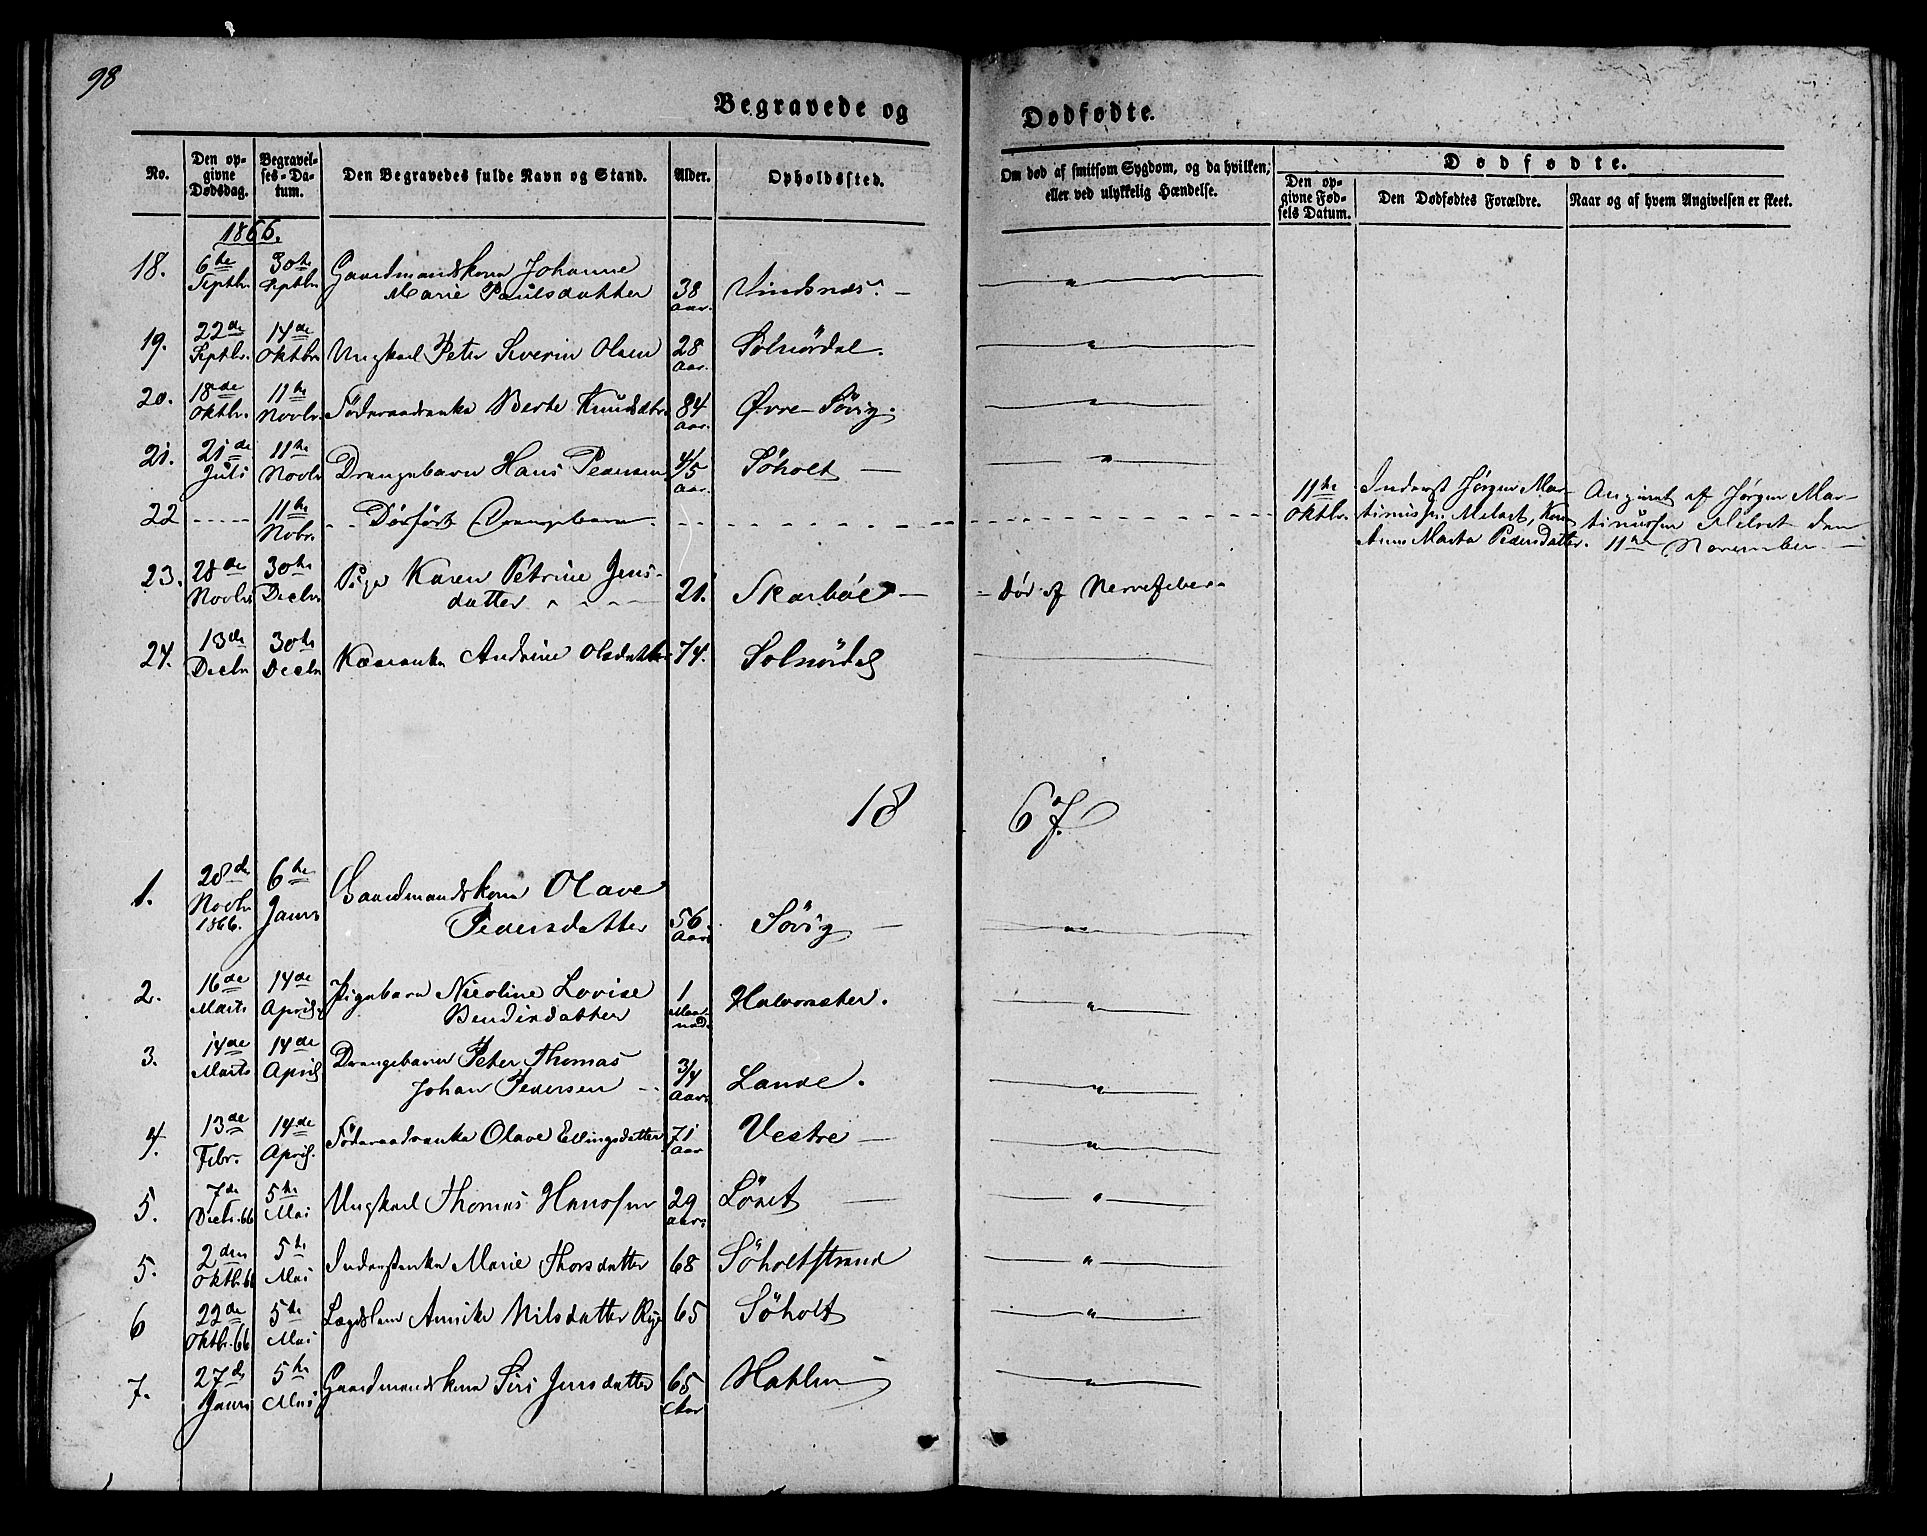 98
Begravede og Dødfødte.
No. Den opgivne Dødsdag. Begravelses-Datum. Den Begravedes fulde Navn og Stand. Alder. Opholdssted. Om død af smitsom Sygdom, og da hvilken, eller ved ulykkelig Hændelse. Dødfødte.
Den opgivne Fødsels Datum. Den Dødfødtes Forældre. Naar og af hvem Angivelsen er skeet.
1866.
18. 6te Septbr. 30te Septbr. Gaardmandskona Johanne
Marie Paulsdatter 38 Aar. Vindsnes. — "
19. 22de Septbr. 14de Oktbr. Ungkarl Peter Severin Olsen 28 Aar. Solnørdal. "
20. 18de Oktbr. 11te Novbr. Føderaadsenka Berte Knudsdtr. 84 Aar. Øvre-Søvig. "
21. 21de Juli 11te Novbr. Drengebarn Hans Pedersen 4/5 Aar. Søholt — "
22 - - - 11te Nobr. - - Dødfødt Drengebarn. - - - 11te Oktbr. Inderst Jørgen Mar-
tinussen Melset, Kone
Anne Marta Pedersdatter. Angivet af Jørgen Mar-
tinussen Melset den
11te November. —
23. 28de Novbr. 30te Decbr. Pige Karen Petrine Jens-
datter " - - 21. Skarbøe — - død af Nervefeber-
24. 13de Decbr. 30te Decbr. Kaarenka Andrine Olsdatter 74. Solnørdal
18 67.
1. 28de Novbr. 1866. 6te Januar Gaardmandskona Olave
Pedersdatter 56 Aar Søvig — "
2. 16de Marts 14de April Pigebarn Nicoline Lovise
Bendixdatter 1 Maaned Halvorsæter. "
3. 14de Marts 14de April Drengebarn Peter Thomas
Johan Pedersen - 3/4 Aar Lande. "
4. 13de Febr. 14de April. Føderaadsenka Olave Ellingsdatter 71 Aar Vestre — "
5. 7de Decbr. 66 5te Mai Ungkarl Thomas Hanssen 29 Aar. Løset — "
5. 2den Oktbr. 66 5te Mai Inderstenka Marie Thorsdatter 68 Søholtstrand "
6 22de Oktbr. 66 5te Mai Lægdslem Annike Nilsdatter 65 Søholt "
7. 27de Januar 5te Mai Gaardmandskona Siri Jensdatter 65 Aar Hatlen "